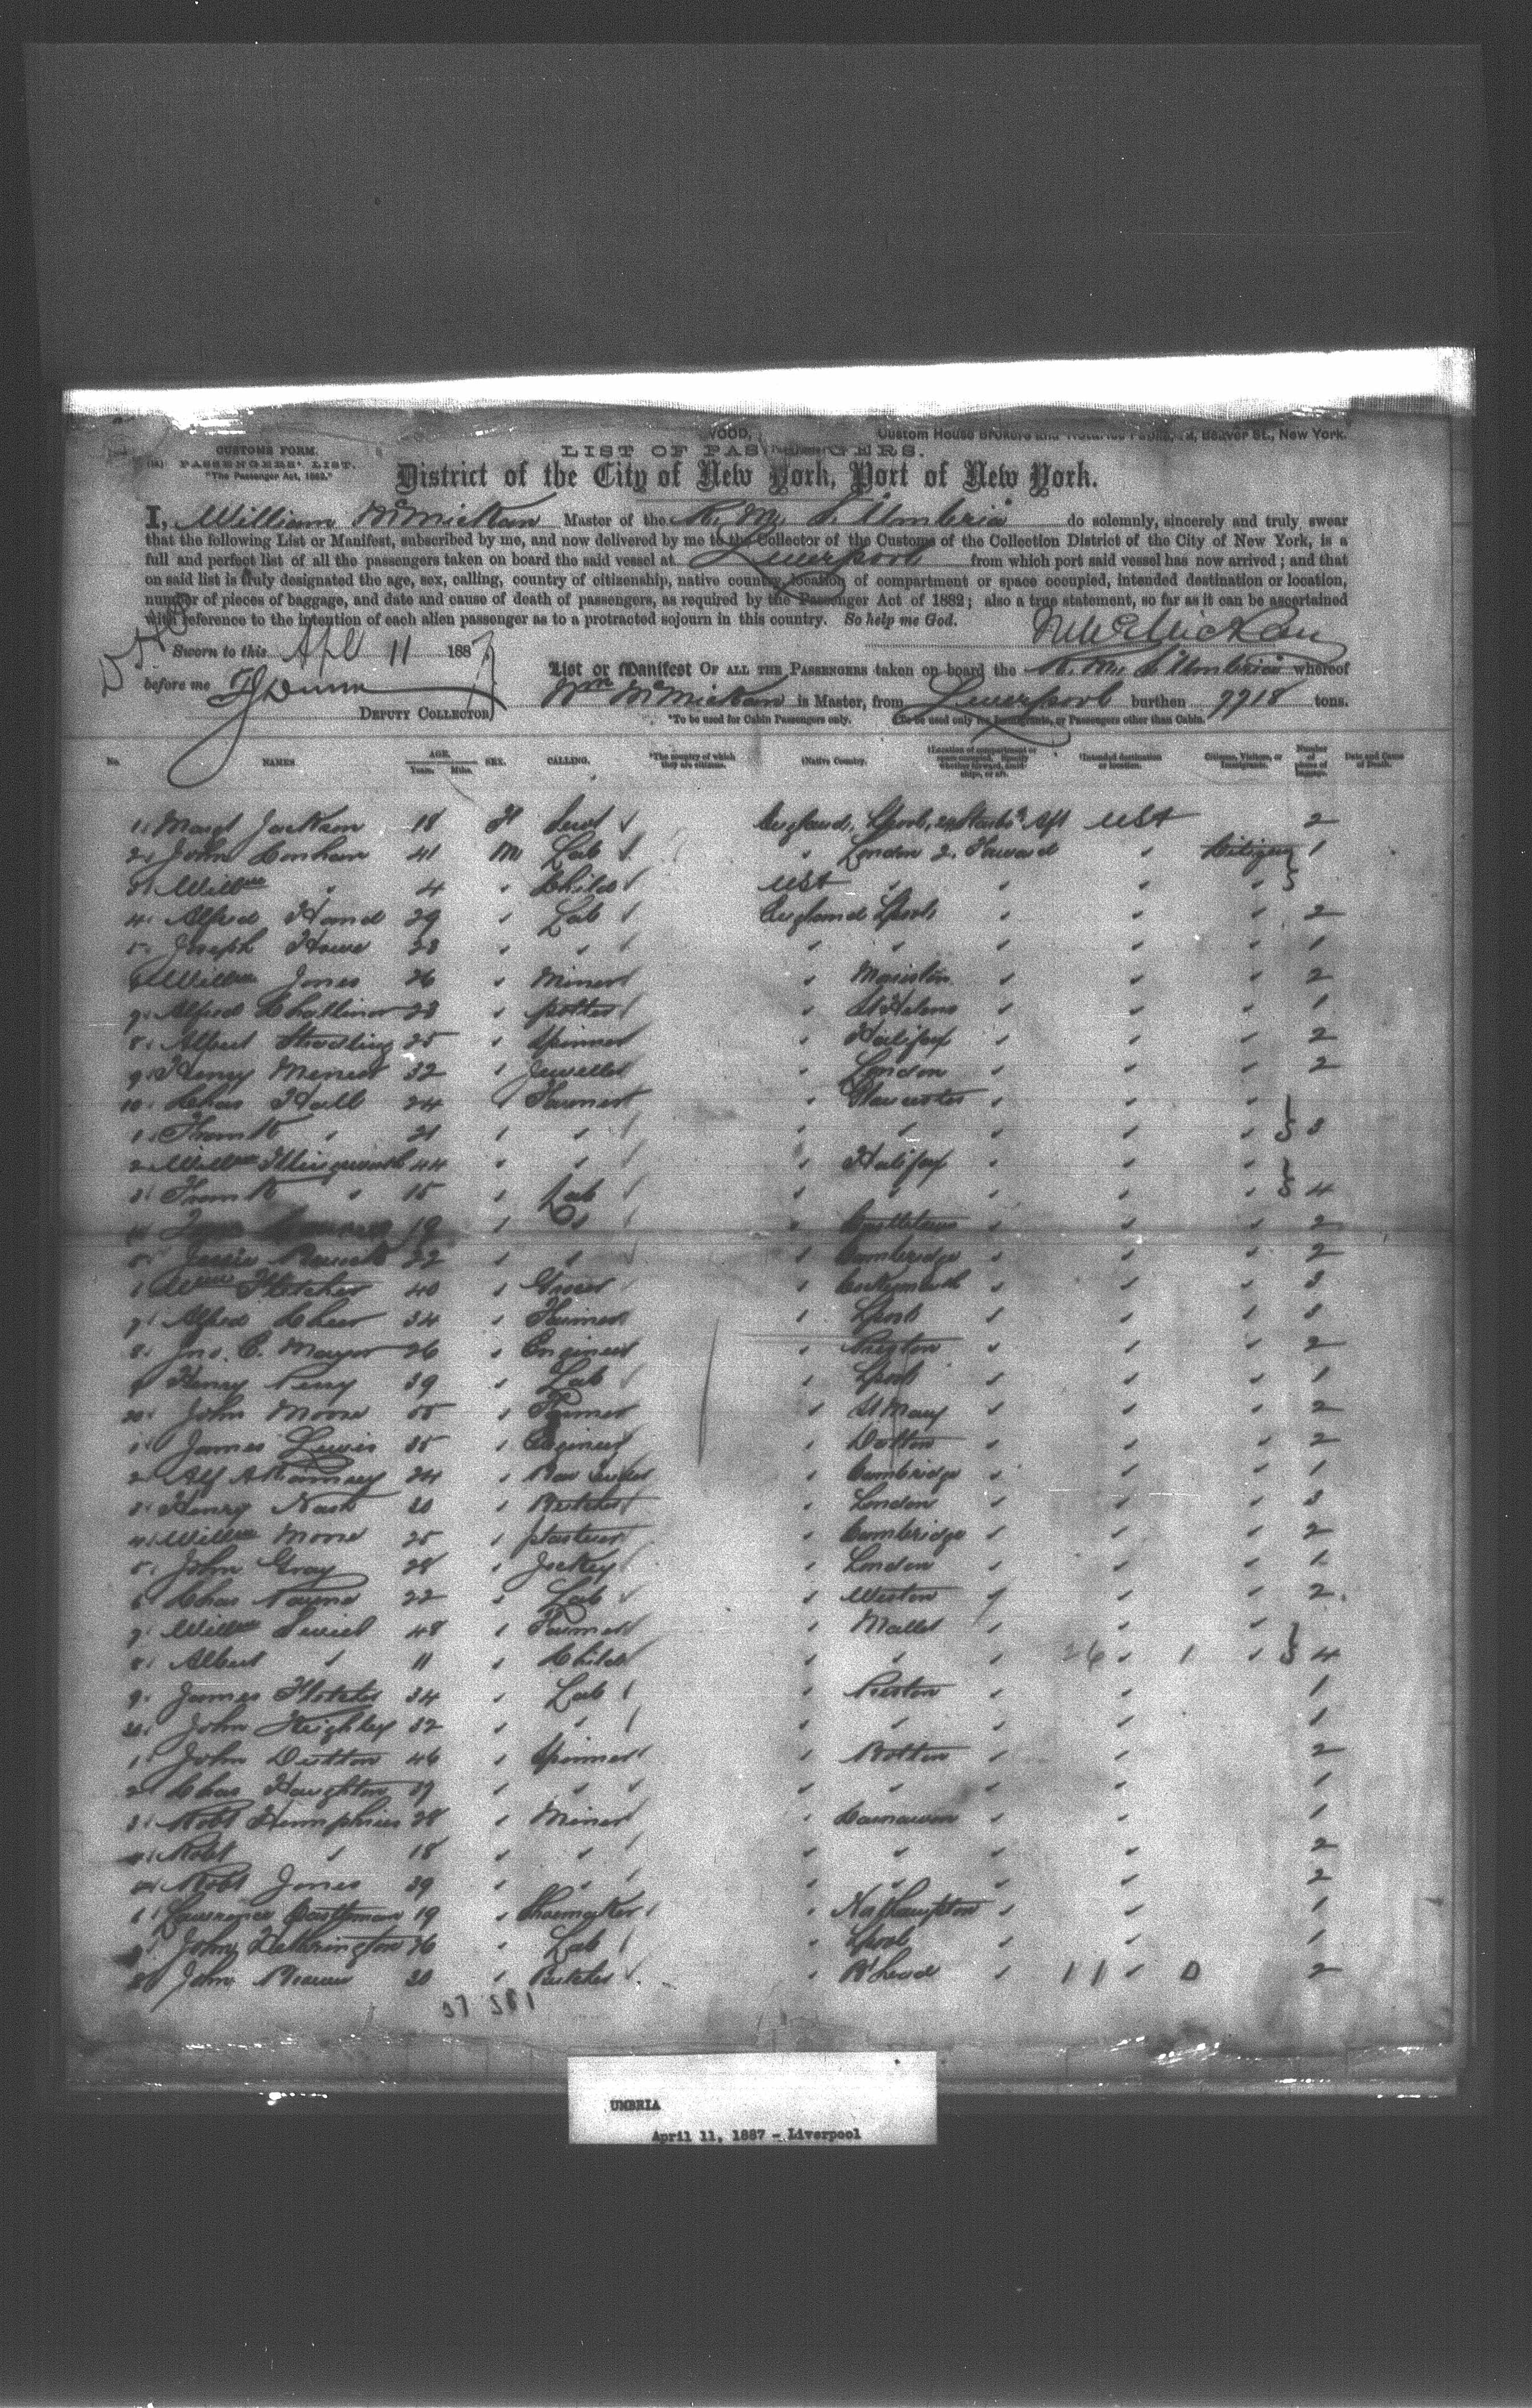 WOOD, Custom House Brokers and Notaries Public, Beaver St., New York.
CUSTOMS FORM.
LIST OF PASSENGERS.
PASSENGERS' LIST.
"The Passenger Act, 1882."
District of the City of New York, Port of New York.
I, William McMickan Master of the R. M. S. Umbria do solemnly, sincerely and truly swear
that the following List or Manifest, subscribed by me, and now delivered by me to the Collector of the Customs of the Collection District of the City of New York, is a
full and perfect list of all the passengers taken on board the said vessel at Liverpool from which port said vessel has now arrived; and that
on said list is truly designated the age, sex, calling, country of citizenship, native country, location of compartment or space occupied, intended destination or location,
number of pieces of baggage, and date and cause of death of passengers, as required by the Passenger Act of 1882; also a true statement, so far as it can be ascertained
with reference to the intention of each alien passenger as to a protracted sojourn in this country. So help me God.
Sworn to this Apl 11 1887
before me
DEPUTY COLLECTOR
List or Manifest OF ALL THE PASSENGERS taken on board the R. M. S. Umbria whereof
Wm McMickan is Master, from Liverpool burthen 7718 tons.
*To be used for Cabin Passengers only. †To be used only for Immigrants, or Passengers other than Cabin.
No. NAMES AGE. Years. Mths. SEX. CALLING. *The country of which they are citizens. †Native Country. †Location of compartment or space occupied. †Intended destination or location. Citizens, Visitors, or Immigrants. Number of pieces of baggage. Date and Cause of Death.
1 Margt Jackson 18 F Servt England Lpool Aft USA 2
2 John 41 M Lab " London 2. Forward " Citizen 1
3 Willm " 4 " Child USA " " " "
4 Alfred Hand 29 " Lab England Lpool " " " 2
5 Joseph Howe 28 " " " " " " " 1
6 Willm Jones 26 " Miner " " " " 2
7 Alfred Challinor 23 " potter " St Helens " " " 1
8 Albert 25 " Spinner " Halifax " " " 2
9 Henry 32 " Jeweller " London " " " 2
10 Chas Hall 24 " Farmer " Gloucester " " "
1 Frank " 21 " " " " " " " 3
2 Willm Illingworth 44 " " " Halifax " " "
3 Frank " 15 " Lab " " " " " 4
4 19 " " " " " " 2
5 22 " " " Cambridge " " " 2
6 Wm Fletcher 40 " Grocer " Cockermouth " " " 3
7 Alfred 34 " Farmer " Lpool " " " 3
8 Jno. C. Mayor 26 " Engineer " Preston " " " 2
9 Henry Perry 39 " Lab " Lpool " " " 1
20 John Moore 55 " Farmer " St Mary " " " 2
1 James Lewis 35 " Engineer " " " " 2
2 Alf A Ramsey 24 " " Cambridge " " " 1
3 Henry Nash 30 " Butcher " London " " " 3
4 Willm Moore 25 " " Cambridge " " " 2
5 John Gray 28 " Jockey " London " " " 1
6 Chas Payne 22 " Lab " Weston " " " 2
7 Willm 48 " Farmer " " " "
8 Albert " 11 " Child " " " 26 " 1 " 4
9 James Fletcher 34 " Lab " Preston " " 1
30 John Keighley 32 " " " " " " 1
1 John Dutton 46 " Spinner " Bolton " " 2
2 Chas Haughton 37 " " " " " " 1
3 Robt Humphries 28 " Miner " Carnarvon " " 1
4 Robt " 18 " " " " " " 2
5 Robt Jones 39 " " " " " " 2
6 Lawrence 19 " Shoemaker " Northampton " " 1
7 John Hetherington 26 " Lab " Lpool " " 1
8 John 30 " Butcher " B'head " 11 " 0 2
UMBRIA
April 11, 1887 - Liverpool